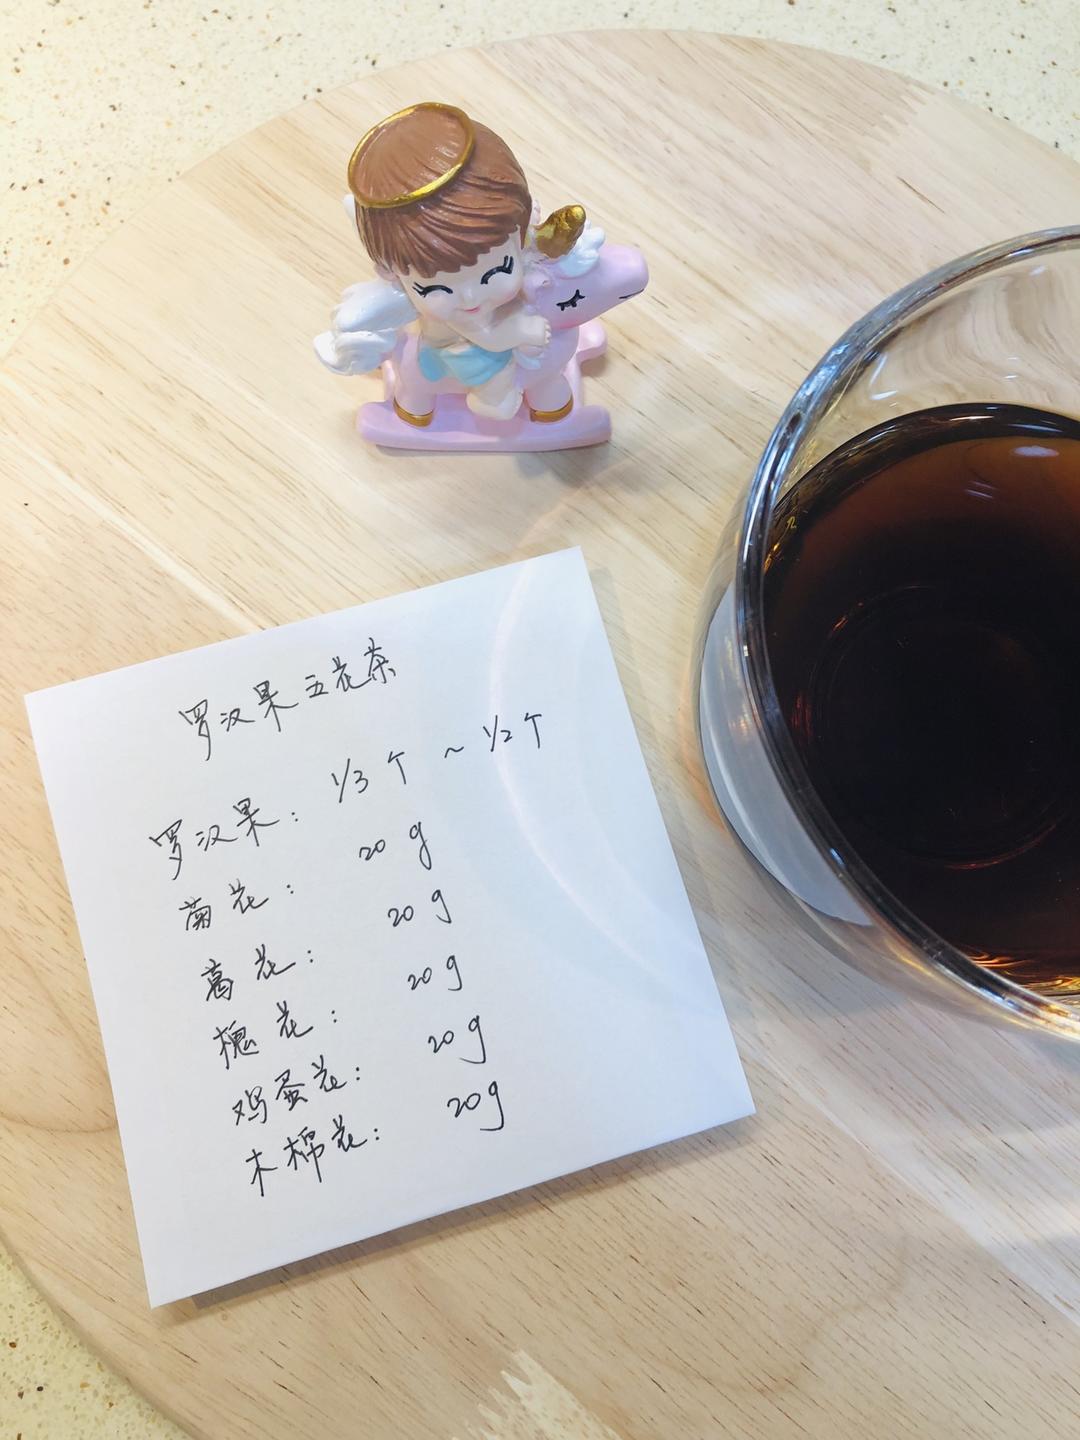 罗汉果五花茶
罗汉果: 1/3个 ~ 1/2个
菊花: 20g
葛花: 20g
槐花: 20g
鸡蛋花: 20g
木棉花: 20g